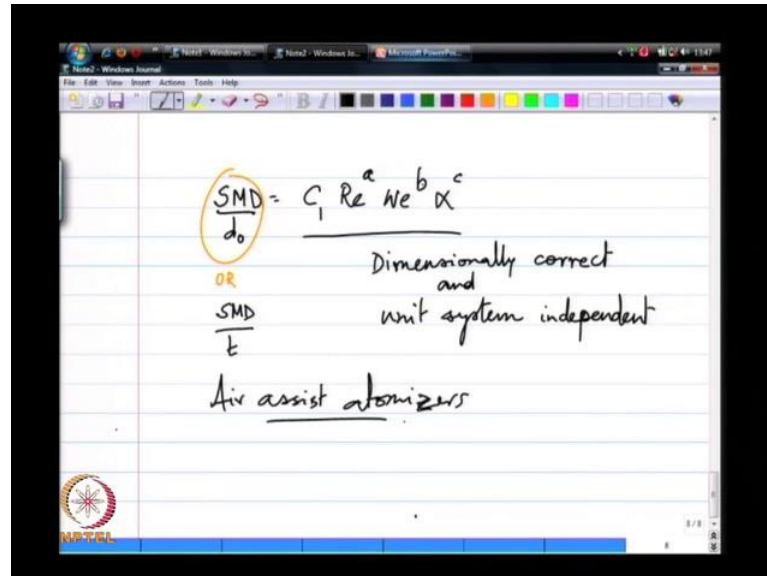 Note1 - Windows Jo... Note2 - Windows Jo... Microsoft PowerPoi... 1347
Note2 - Windows Journal
File Edit View Insert Actions Tools Help
B I
SMD/d₀ = C₁ Re^a We^b α^c
OR
SMD/t
Dimensionally correct
and
unit system independent
Air assist atomizers
NPTEL
8/8
8